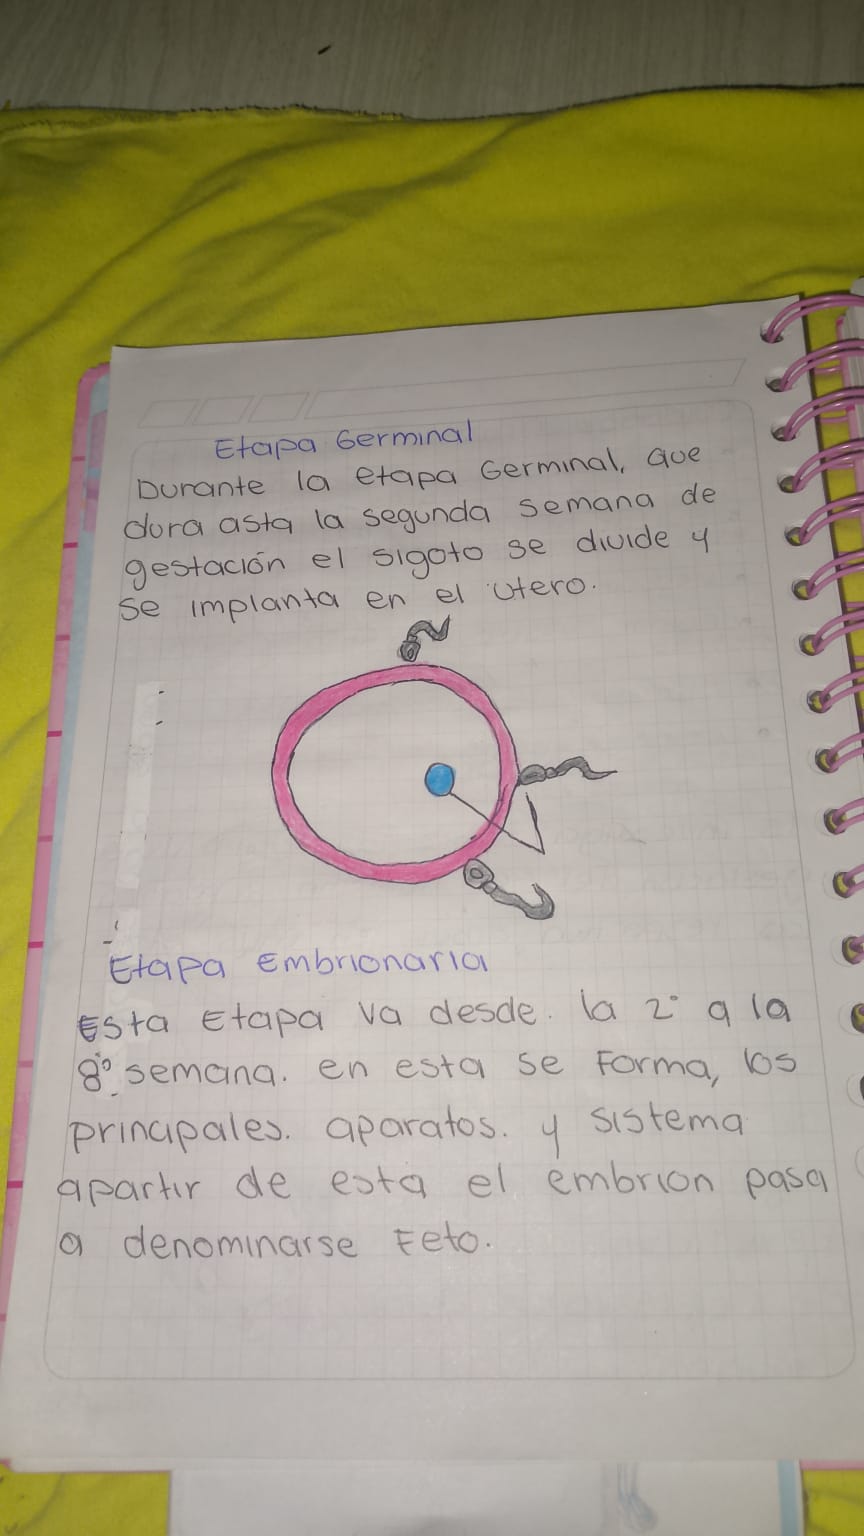 Etapa Germinal
Durante la etapa Germinal, que
dura asta la segunda semana de
gestación el sigoto se divide y
se implanta en el utero.
Etapa Embrionaria
Esta Etapa va desde. la 2° a la
8° semana. en esta se Forma, los
principales. aparatos. y sistema
apartir de esta el embrion pasa
a denominarse Feto.